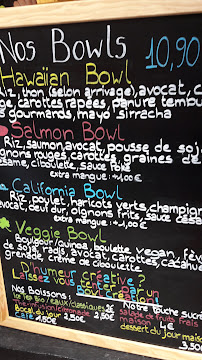 Nos Bowls 10,90
Hawaiian Bowl
Riz, thon (selon arrivage), avocat, c
ge, carottes rapées, panure tembu
s gourmands, mayo sirracha
Salmon Bowl
Riz, saumon, avocat, pousse de soj
ignons rouges, carottes, graines de
same, ciboulette, sauce
extra mangue : +1,00 €
California Bowl
Riz, poulet, haricots verts, champign
avocat, oeuf dur, oignons frits, sauce césa
extra mangue : +1,00 €
Veggie Bowl
Boulgour/quinoa, boulette vegan, fève
de soja, radis, avocat, carottes, cacahu
grenade, crème de ciboulette
L'humeur créative ?
Laissez vous
Nos Boissons :
Notre touche sucré
salade de fruits frais
maison
dessert du jour mais
3,50€
Café 1,50€